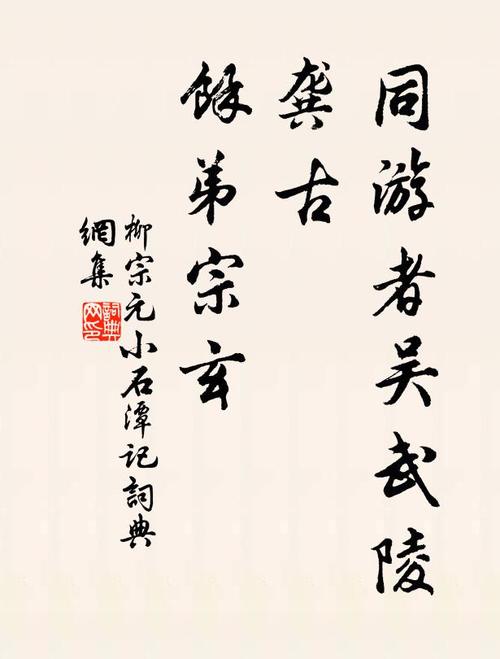 同游者吴武陵
龚古
餘弟宗玄
柳宗元小石潭记詞典
網集
詞典網印